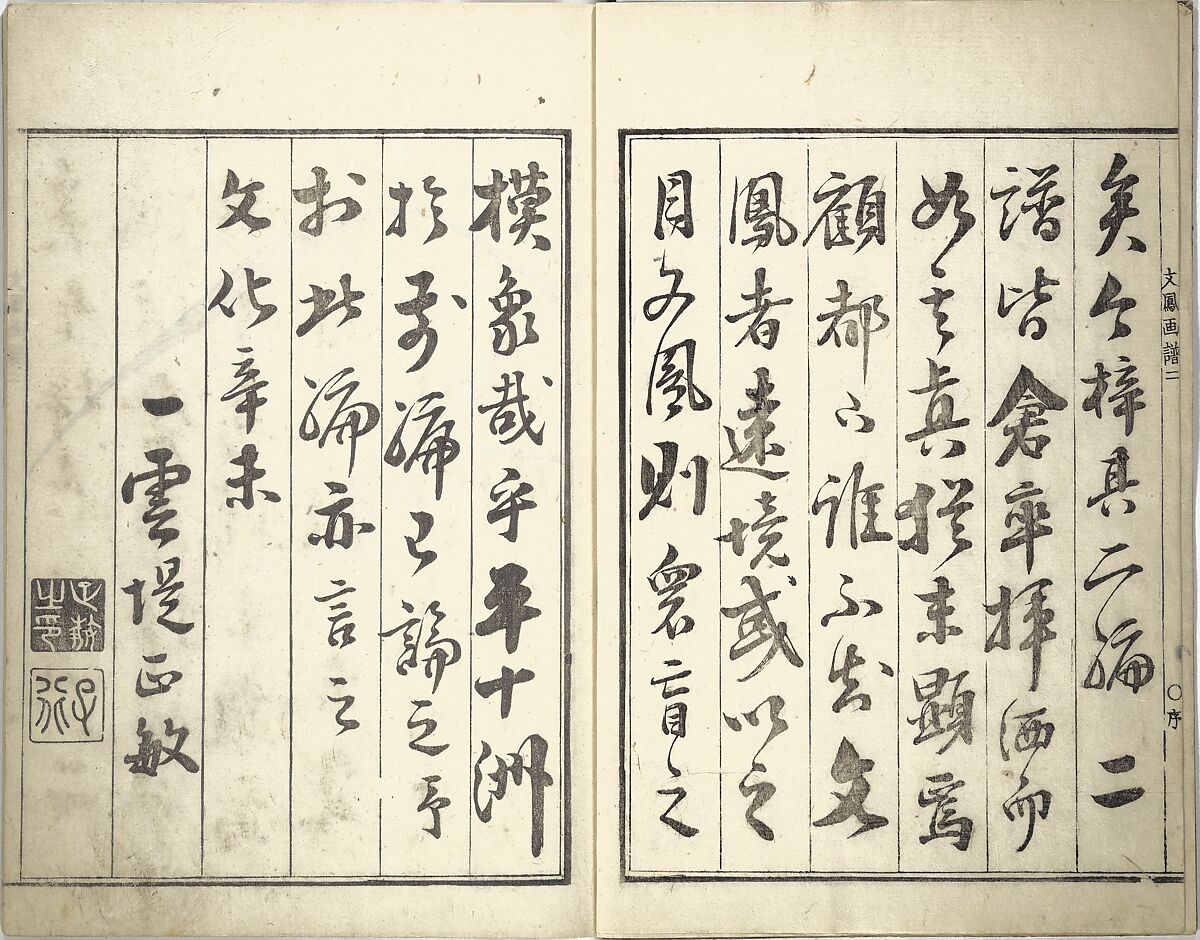 矣今梓具二編二
譜皆倉卒揮洒而
如其真㒵猶未顕焉
顧都下誰不知文
鳳者遠境或以之
目文鳳則衆盲之
文鳳画譜二
〇序
模象哉乎平十洲
於前編已論之予
於此編亦言之
文化辛未
一雲堤正敏